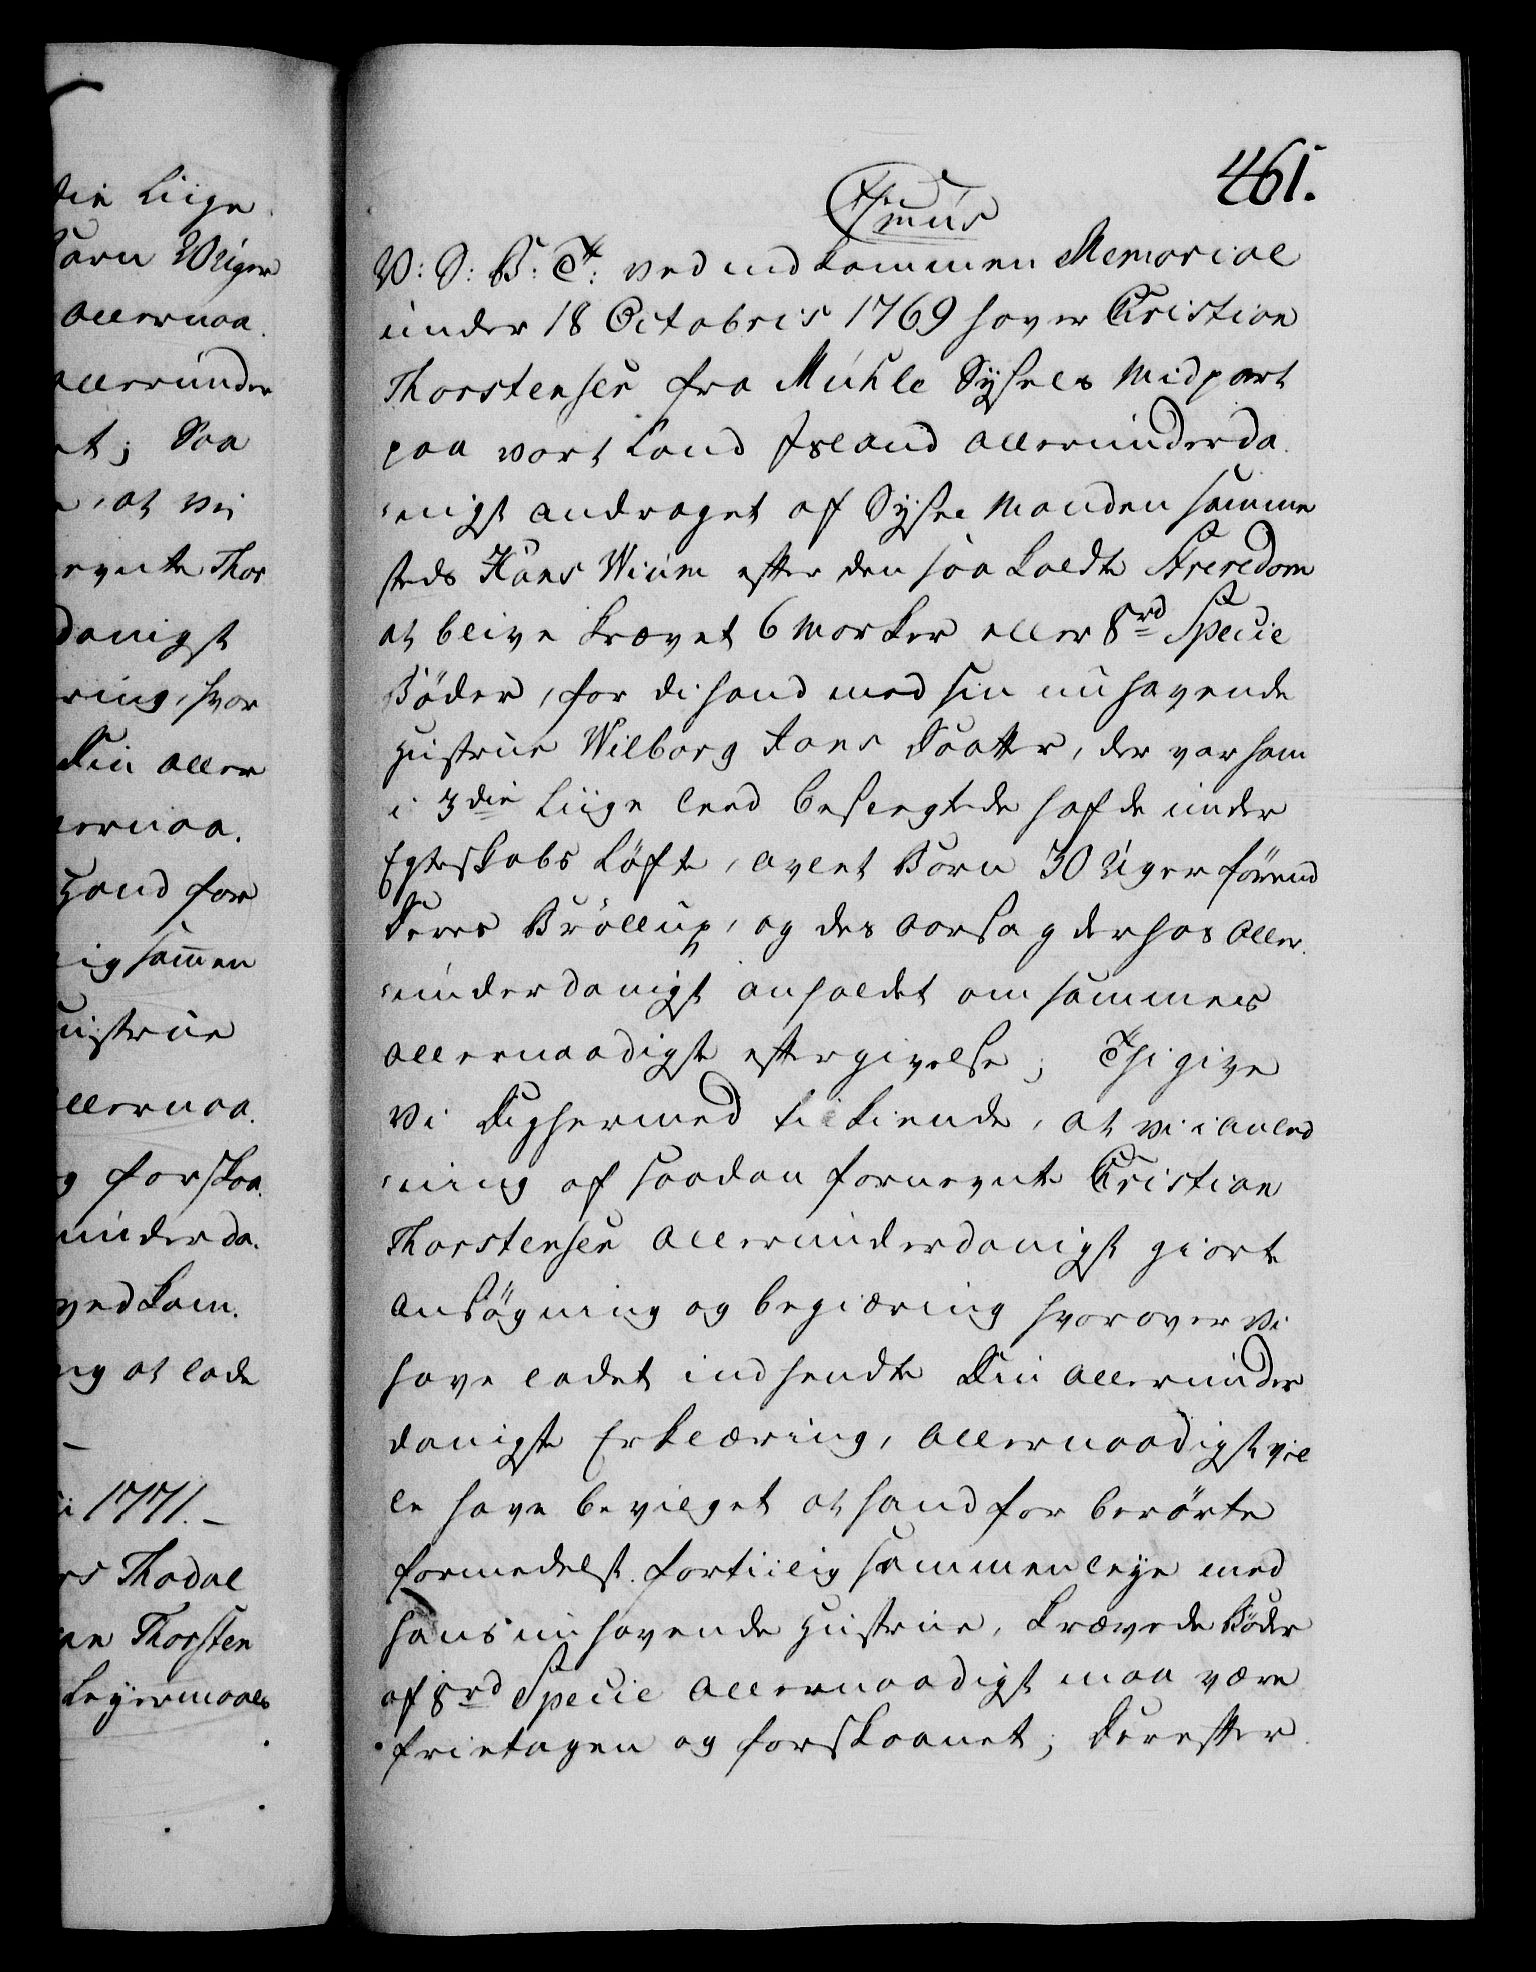 461.
Xmus
V: S: B: T: ved indkommen Memorial
under 18 Octobris 1769 haver Christian
Thorstensen fra Mühle Sysels Midpart
paa vort Land Island allerunderda-
nigst andraget af Syssel Manden samme
steds Hans Wium efter den saa kaldte
at blive krævet 6 Marker eller 8 rd Specie
Bøder, for di hand med sin nu havende
Hustrue Wilborg Jons Daatter, der var ham
i 3die Liige leed beslegtede hafde under
Egteskabs Løfte, avlet Barn 30 Uger førend
Deres Bröllup, og des aarsag derhos aller-
underdanigst anholdet om sammes
allernaadigste eftergivelse; Thi give
Vi Dig hermed tilkiende, at vi i anled
ning af saadan fornevnte Christian
Thorstensen allerunderdanigst giorte
ansøgning og begiæring hvorover vi
have ladet indhendte Din allerunder
danigste Erklæring, allernaadigst vil
le have bevilget at hand for berørte
formedelst fortiilig sammenleye med
hans nu havende Hustrue, krævede Bøder
af 8 rd Specie allernaadigst maa være
frietagen og forskaanet; Derefter
die Liige
Barn Uger
allernaa-
allerunder
et; Saa
at vi
evnte Thor
danigst
ring, hvor
Din aller
lernaa-
Hand for
ig sammen
ustrue
llernaa-
g forskaa-
underda-
vedkom-
ng at lade
i 1771.
rs Thodal
an Thorsten
Leyermaals